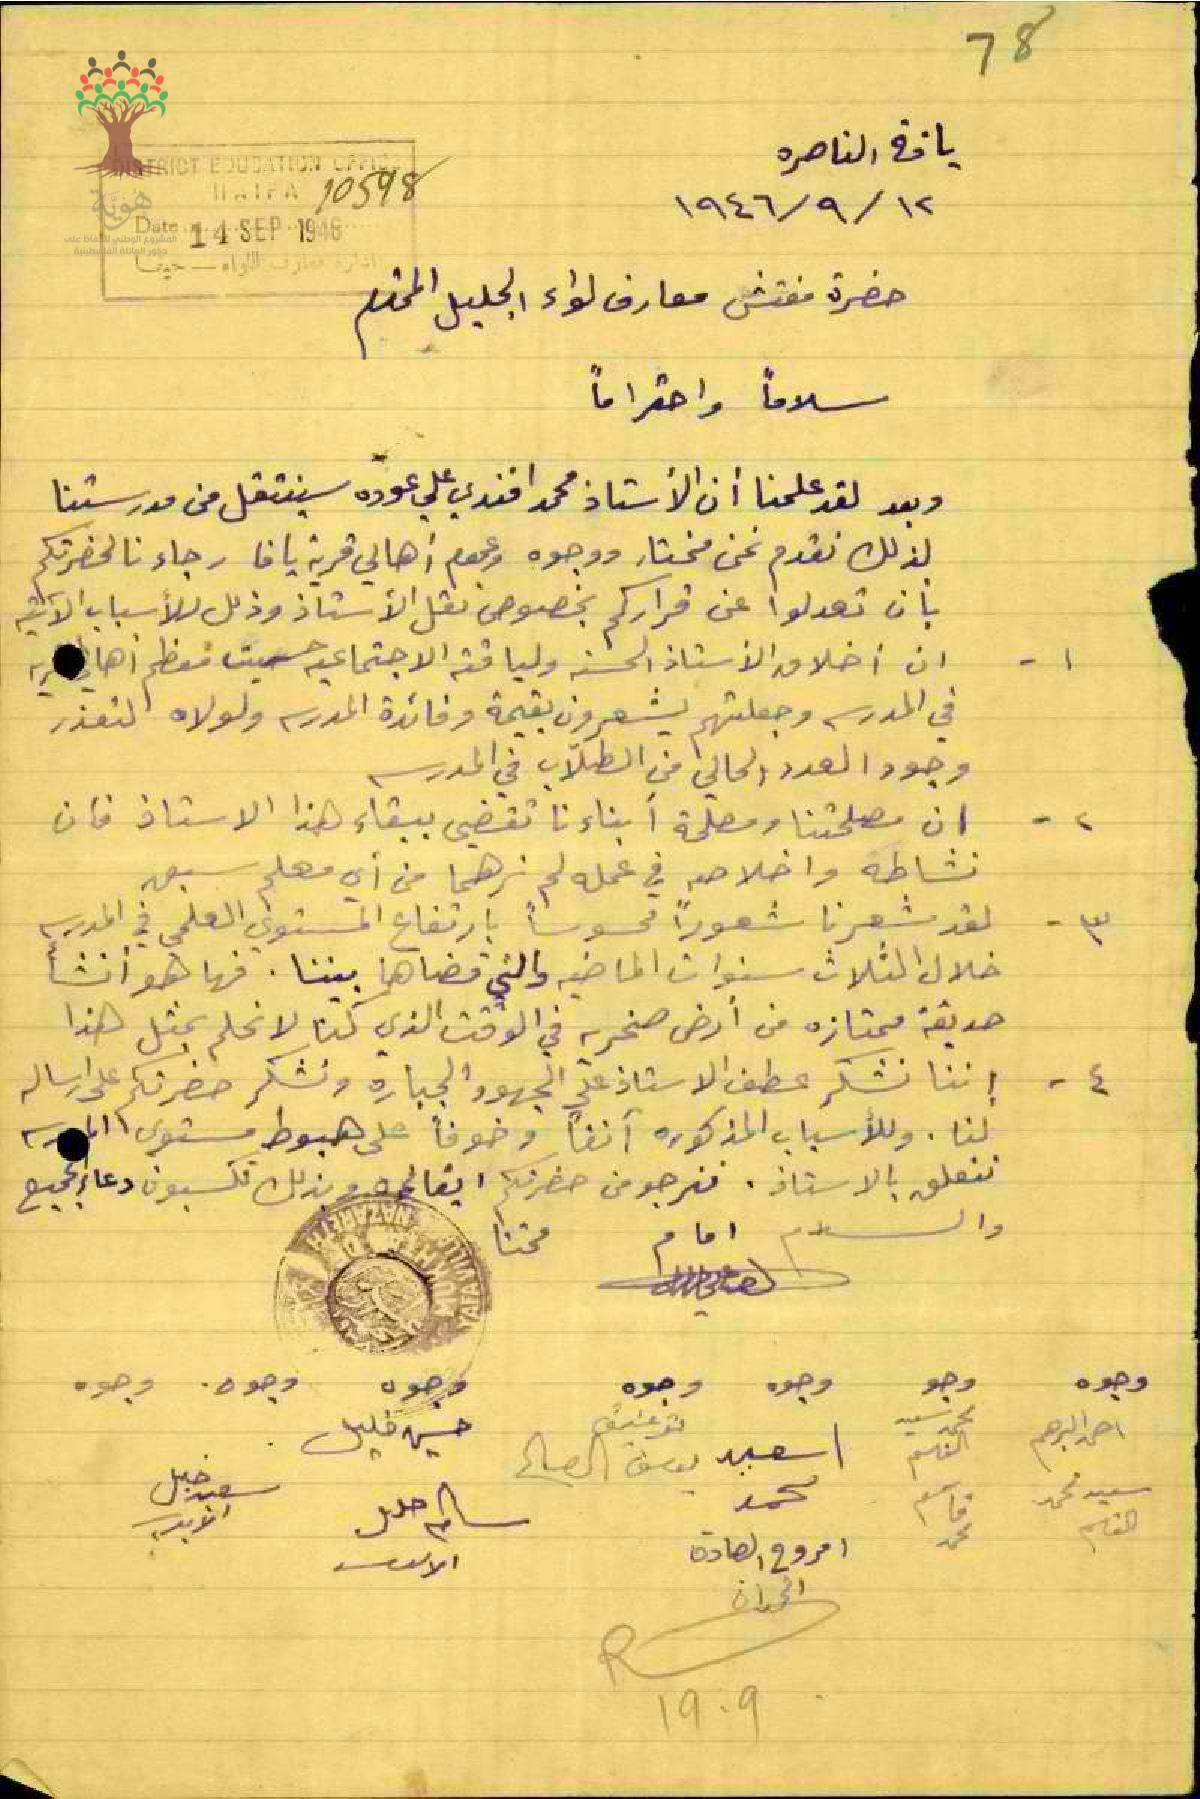 78
DISTRICT EDUCATION OFFICE
HAIFA 10598
Date 14 SEP 1946
ادارة معارف اللواء — حيفا
هوية
المشروع الوطني للحفاظ على
جذور العائلة الفلسطينية
يافة الناصره
١٩٤٦/٩/١٢
حضرة مفتش معارف لواء الجليل المحترم
سلاماً واحتراماً
وبعد لقد علمنا أن الأستاذ محمد افندي علي عوده سينتقل من مدرستنا
لذلك نقدم نحن مختار ووجوه وعموم أهالي قرية يافا رجاءنا لحضرتكم
بان تعدلوا عن قراركم بخصوص نقل الأستاذ وذلك للأسباب الآتية
١- ان أخلاق الأستاذ الحسنه ولياقته الاجتماعيه حببت معظم أهالي
في المدرسه وجعلتهم يشعرون بقيمة وفائدة المدرسه ولولاه لتعذر
وجود العدد الحالي من الطلاب في المدرسه
٢- ان مصلحتنا ومصلحة أبناءنا تقضي ببقاء هذا الاستاذ فان
نشاطه واخلاصه في عمله لم نرهما من أي معلم سبق
٣- لقد شعرنا شعوراً محسوساً بارتفاع المستوى العلمي في المدرسه
خلال الثلاث سنوات الماضيه والتي قضاها بيننا. فها هو أنشأ
حديقة ممتازه من أرض صخريه في الوقت الذي كنا لا نحلم بمثل هذا
٤- إننا نشكر عطف الاستاذ على الجهود الجباره ونشكر حضرتكم على ارساله
لنا. وللأسباب المذكوره آنفاً وخوفاً على هبوط مستوى المدرسه
نتعلق بالاستاذ. فنرجو من حضرتكم ابقائه وبذلك تكسبون دعاء الجميع
والسلام امام مختار
وجوه وجوه وجوه وجوه وجوه وجوه وجوه
محمد سعيد توفيق حسين خليل
اسعيد يوسف الصالح
سعيد محمد قاسم محمد سالم خليل سعيد خليل
محمد
19.9